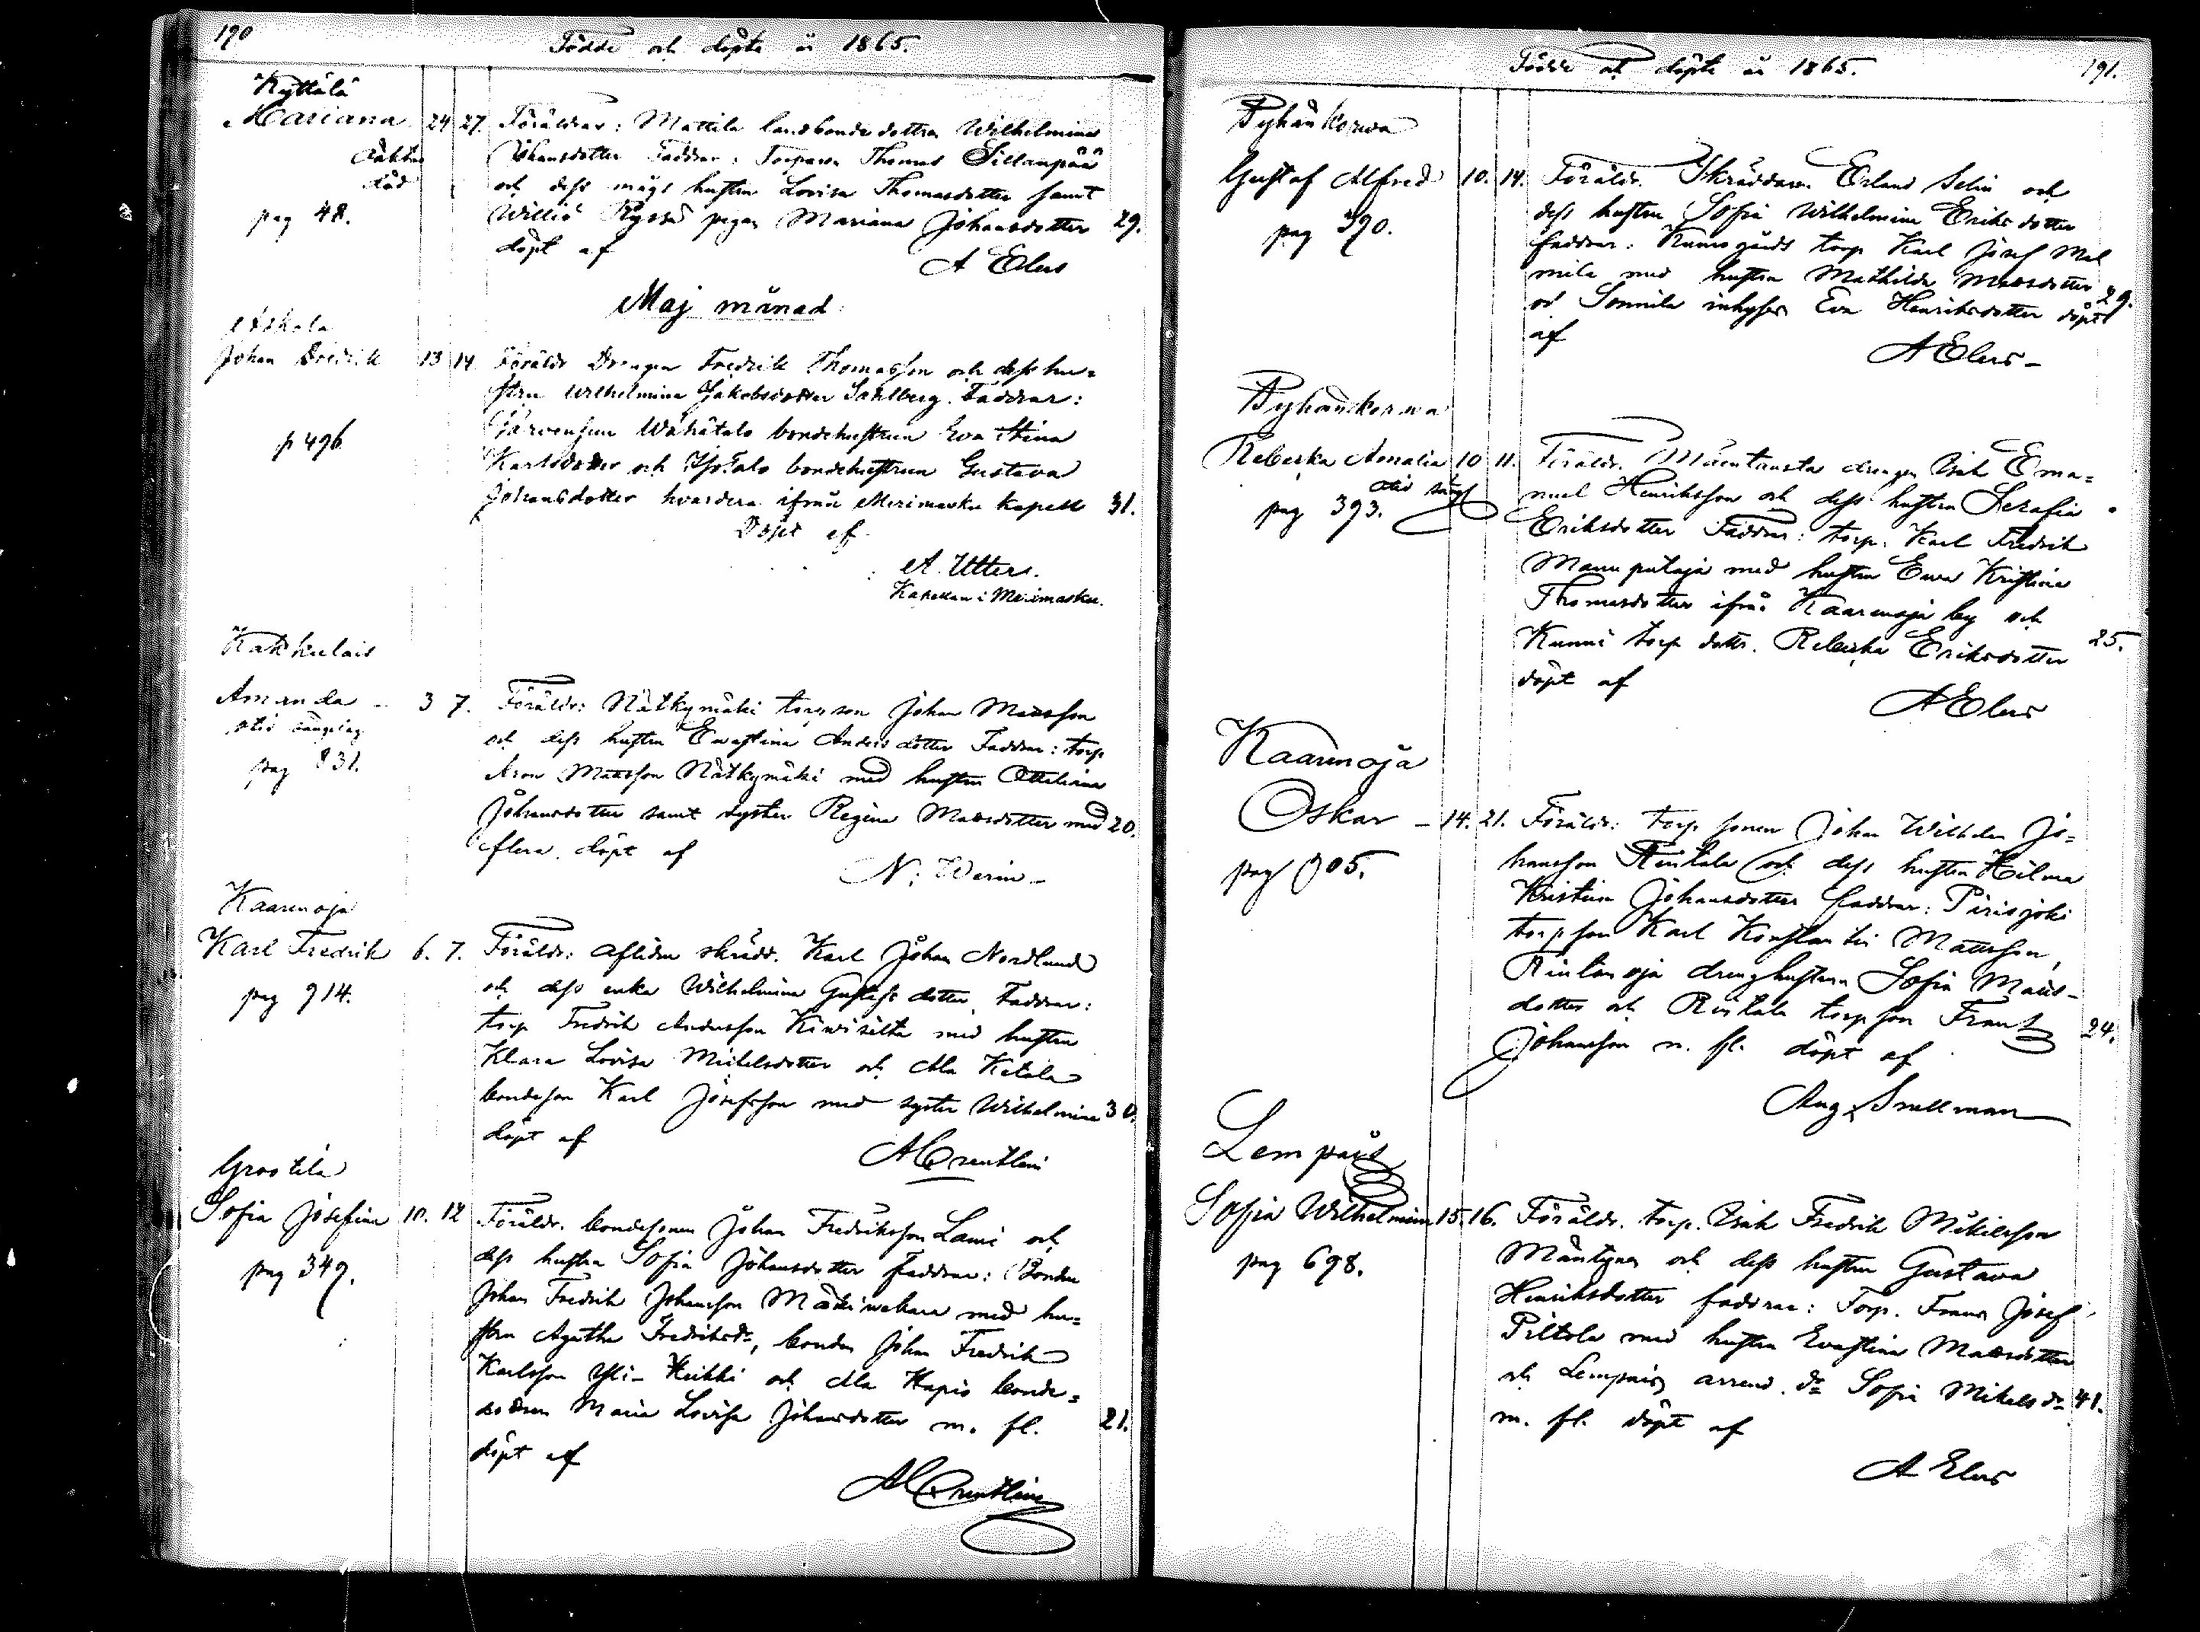 190
Födde och döpte år 1865.
Kyttälä
Mariana 24 27. Föräldrar: Mattila landbonde dottren Wilhelmina
oäkta Johansdotter Faddrar: Torparen Thomas Sillanpää
död och dess mågs hustru Lovisa Thomasdotter samt
pag 48. Pyssä pigan Mariana Johansdotter 29.
döpt af
A Elers
Maj månad
Askola
Johan Fredrik 13 14 Föräldr Drengen Fredrik Thomasson och dess hu=
stru Wilhelmina Jakobsdotter Sahlberg. Faddrar:
Järvensuu Wähätalo bondehustrun Eva Stina
p 496 Karlsdotter och Isotalo bondehustrun Gustava
Johansdotter hvardera ifrån Merimasku Kapell 31.
Döpt af
A. Utter.
Kapellan i Merimasku.
Kakkulais
Amanda 3 7. Föräldr: Nätkymäki torp son Johan Matsson
och dess hustru Evastina Andersdotter Faddrar: torp
pag 831. Aron Matsson Nätkymäki med hustru Ottiliana
Johansdotter samt syster Regina Matsdotter med 20.
flera. döpt af
N: Werin
Kaarinoja
Karl Fredrik 6. 7. Föräldr: aflidne skrädd. Karl Johan Nordlund
pag 914. och dess enka Wilhelmina Gustafsdotter Faddrar:
torp Fredrik Andersson Kiwisilta med hustru
Klara Lovisa Mickelsdotter och Ala Ketola
bondeson Karl Josefsson med syster Wilhelmina 30.
döpt af
Grootila
Sofia Josefina 10. 12 Föräldr. bondesonen Johan Fredriksson Lauri och
dess hustru Sofia Johansdotter faddrar: Bonden
pag 349. Johan Fredrik Johansson med hu=
stru Agatha Fredriksdr, bonden Johan Fredrik
Karlsson Yli-Heikki och Ala Hapio bonde=
Maria Lovisa Johansdotter m. fl. 21.
döpt af
Födde och döpte år 1865.
191.
Pyhänkorwa
Gustaf Alfred 10. 14. Föräldr. Skräddaren Erland Selin och
pag 390. dess hustru Sofia Wilhelmina Eriksdotter
faddrar: torp Karl Josef Mal
mila med hustru Mathilda Matsdotter 29.
och Sonnila inhyses Eva Henriksdotter döpt
af
A Elers
Pyhänkorwa
Rebecka Amalia 10 11. Föräldr. drengen Isak Ema=
pag 393. nuel Henriksson och dess hustru Serafia
Eriksdotter Faddrar: torp. Karl Fredrik
med hustru Eva Kristina
Thomasdotter ifrån Kaarenoja by och
Kunni torp dottr. Rebecka Eriksdotter 25.
döpt af
A Elers
Kaarinoja
Oskar 14. 21. Föräldr: torp sonen Johan Wilhelm Jo=
pag 905. hansson Rintala och dess hustru Hilma
Kristina Johansdotter faddrar: Pirisjoki
torp son Karl Konstantin Mattsson,
Rintanoja drenghustrun Sofia Mats-
dotter och Rintala torp son Frans 24.
Johansson m. fl. döpt af
Aug Snellman
Lempäis
Sofia Wilhelmina 15. 16. Föräldr. torp. Isak Fredrik Mikelsson
pag 698. Mäntynen och dess hustru Gustava
Henriksdotter faddrar: Torp. Frans Josef
Piltola med hustru Evastina Matsdotter
och Lempäis arrend. dr Sofia Mikelsdr 41.
m. fl. döpt af
A Elers